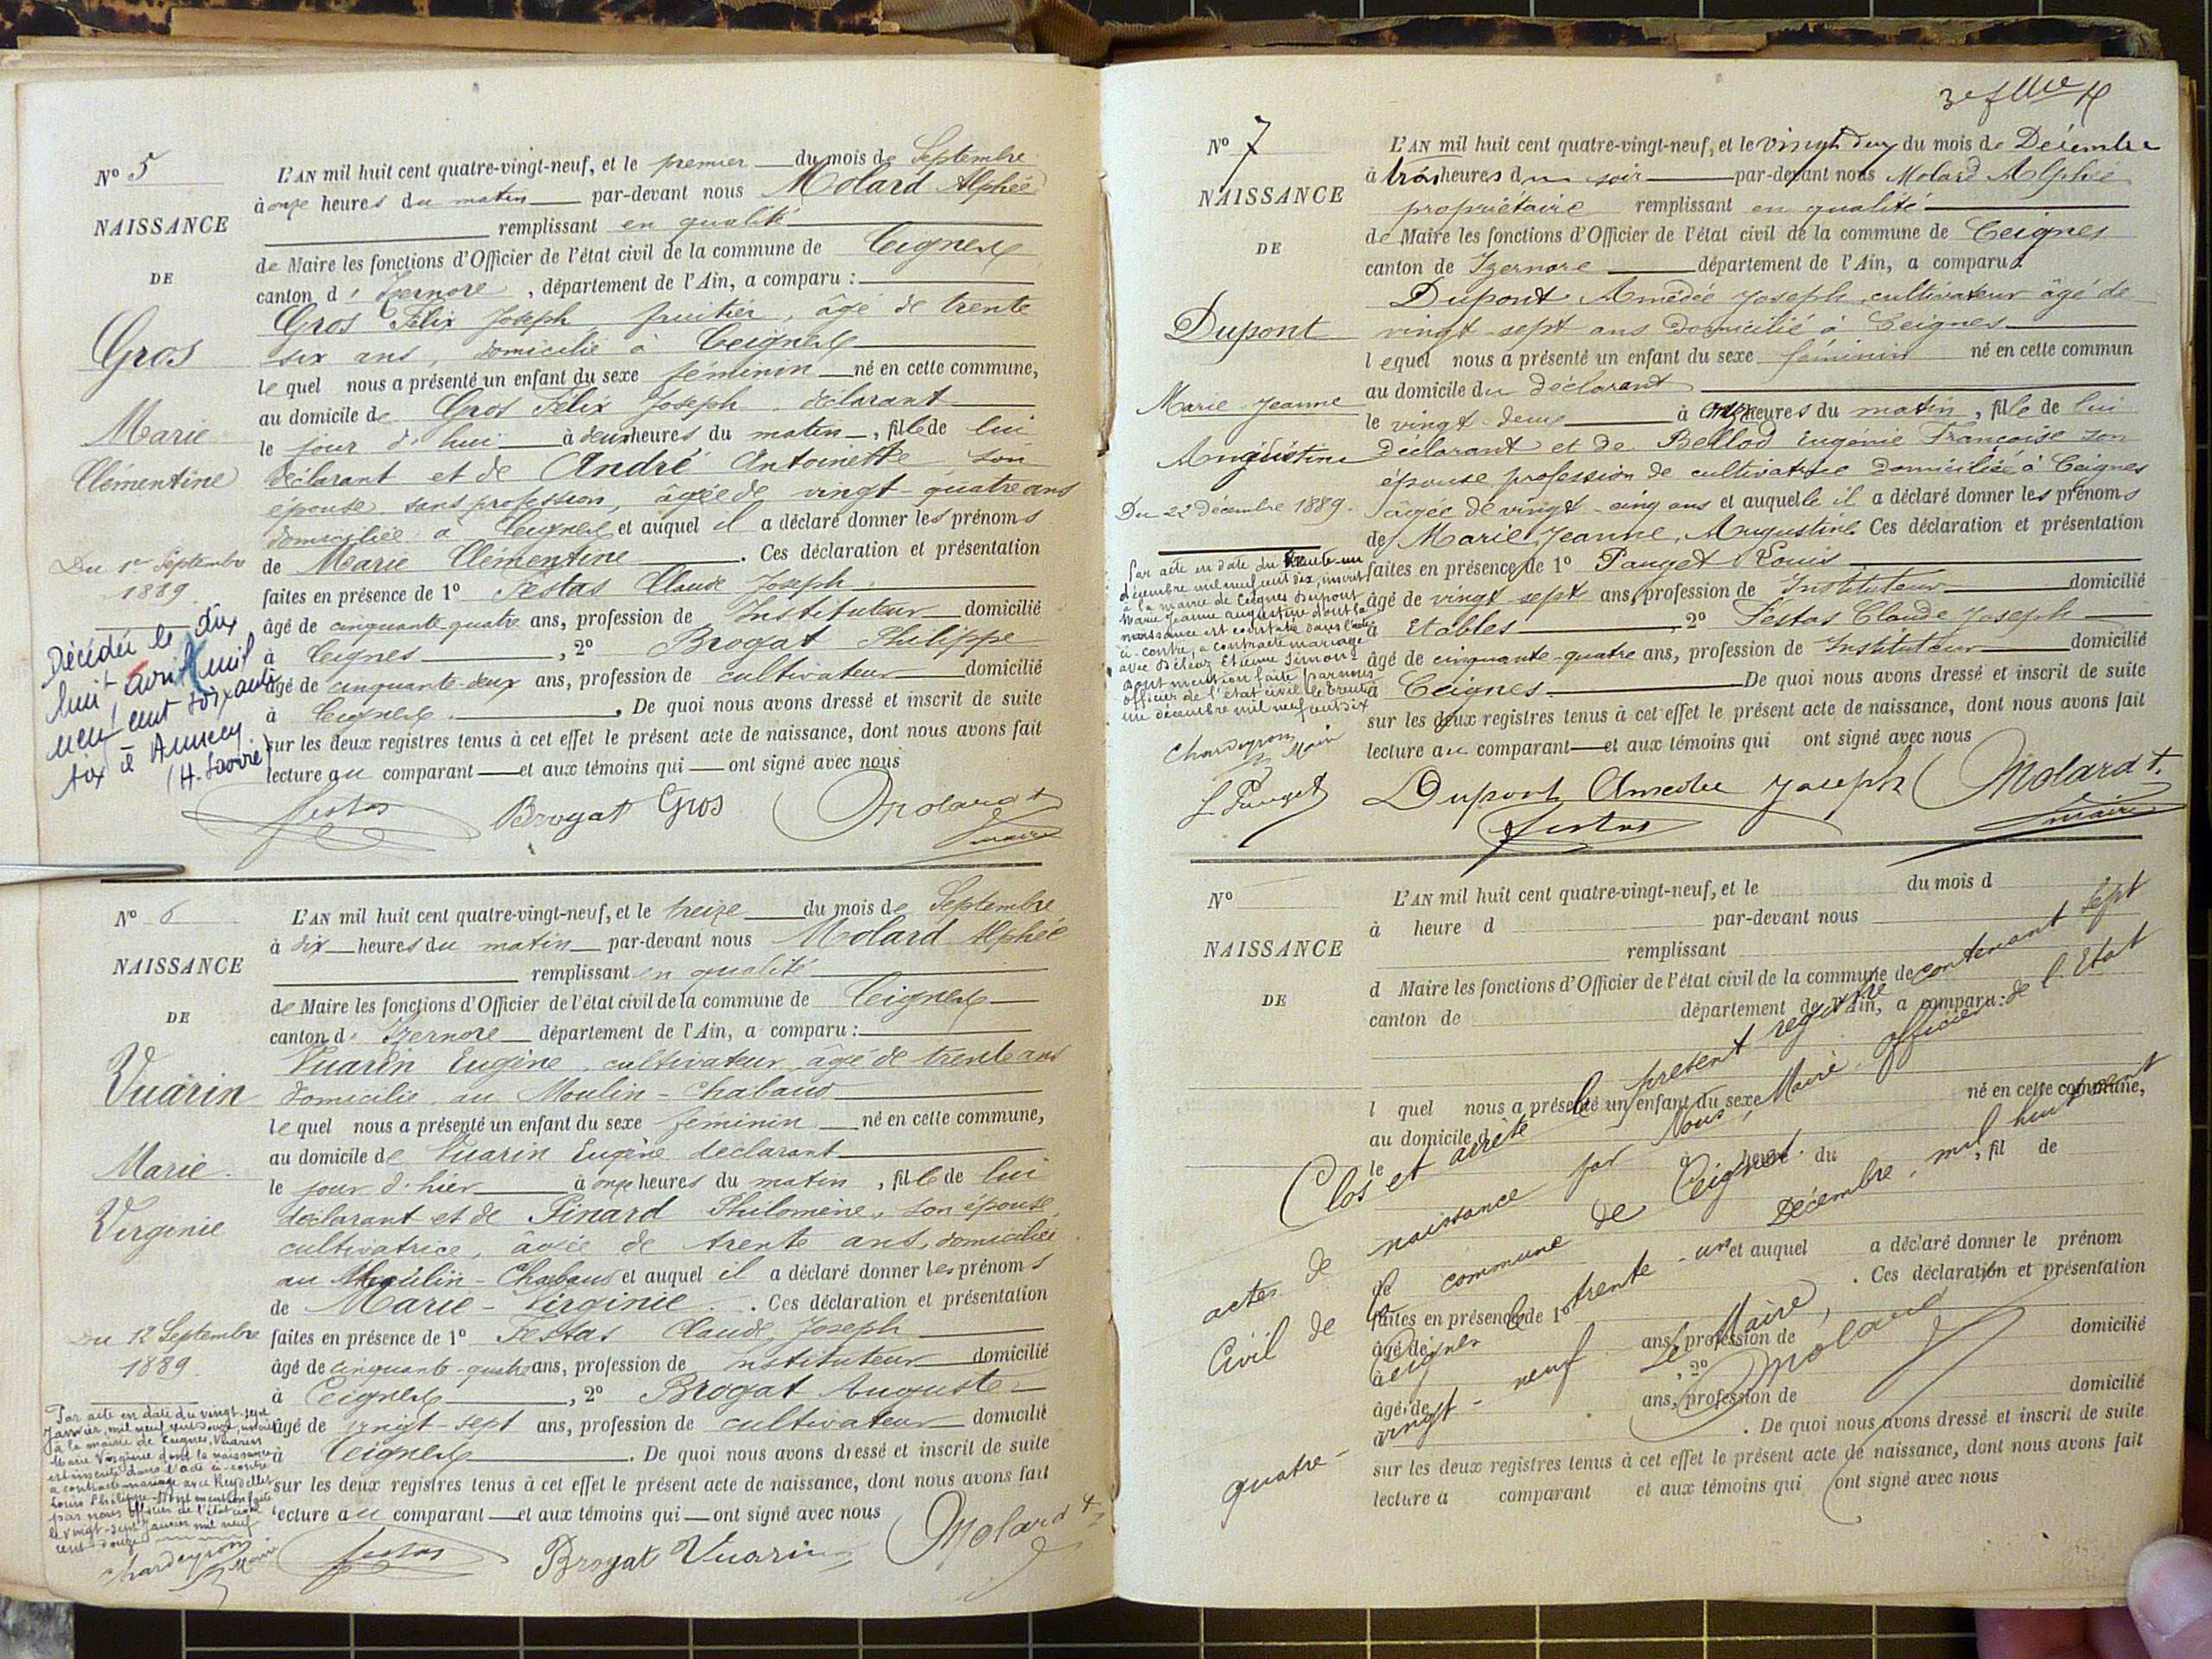 Nº 5
NAISSANCE
DE
Gros
Marie
Clémentine
Du 1er Septembre
1889
Décédée le dix
huit avril mil
neuf cent soixante
six à Annecy
(H. Savoie)
L'AN mil huit cent quatre-vingt-neuf, et le premier du mois de Septembre
à onze heures du matin par-devant nous Molard Alphée
remplissant en qualité
de Maire les fonctions d'Officier de l'état civil de la commune de Ceignes
canton d'Izernore, département de l'Ain, a comparu :
Gros Félix Joseph fruitier, âgé de trente
six ans, domicilié à Ceignes
lequel nous a présenté un enfant du sexe féminin né en cette commune,
au domicile de Gros Félix Joseph déclarant
le jour d'hui à deux heures du matin, fille de lui
déclarant et de André Antoinette, son
épouse sans profession, âgée de vingt-quatre ans
domiciliée à Ceignes et auquel il a déclaré donner les prénoms
de Marie Clémentine. Ces déclaration et présentation
faites en présence de 1º Festas Claude Joseph
âgé de cinquante quatre ans, profession de Instituteur domicilié
à Ceignes, 2º Brogat Philippe
âgé de cinquante-deux ans, profession de cultivateur domicilié
à Ceignes. De quoi nous avons dressé et inscrit de suite
sur les deux registres tenus à cet effet le présent acte de naissance, dont nous avons fait
lecture au comparant et aux témoins qui ont signé avec nous
Festas Brogat Gros Molard
maire
Nº 6
NAISSANCE
DE
Vuarin
Marie
Virginie
Du 12 Septembre
1889.
Par acte en date du vingt-sept
Janvier, mil neuf cent douze, inscrit
à la mairie de Ceignes, Vuarin
Marie Virginie dont la naissance
est inscrite dans l'acte ci-contre
a contracté mariage avec Reydellet
Louis Philippe. Dont mention faite
par nous officier de l'état civil
le vingt-sept Janvier mil neuf
cent douze
Chardeyron
Maire
L'AN mil huit cent quatre-vingt-neuf, et le treize du mois de Septembre
à dix heures du matin par-devant nous Molard Alphée
remplissant en qualité
de Maire les fonctions d'Officier de l'état civil de la commune de Ceignes
canton d'Izernore département de l'Ain, a comparu :
Vuarin Eugène, cultivateur, âgé de trente ans
domicilié au Moulin-Chabaud
lequel nous a présenté un enfant du sexe féminin né en cette commune,
au domicile de Vuarin Eugène déclarant
le jour d'hier à onze heures du matin, fille de lui
déclarant et de Pinard Philomène, son épouse,
cultivatrice, âgée de trente ans, domiciliée
au Moulin-Chabaud et auquel il a déclaré donner les prénoms
de Marie-Virginie. Ces déclaration et présentation
faites en présence de 1º Festas Claude Joseph
âgé de cinquante-quatre ans, profession de Instituteur domicilié
à Ceignes, 2º Brogat Auguste
âgé de vingt-sept ans, profession de cultivateur domicilié
à Ceignes. De quoi nous avons dressé et inscrit de suite
sur les deux registres tenus à cet effet le présent acte de naissance, dont nous avons fait
lecture au comparant et aux témoins qui ont signé avec nous
Festas Brogat Vuarin Molard
3e f
Nº 7
NAISSANCE
DE
Dupont
Marie Jeanne
Augustine
Du 22 décembre 1889.
Par acte en date du trente-un
décembre mil neuf cent dix, inscrit
à la mairie de Ceignes Dupont
Marie Jeanne Augustine dont la
naissance est constatée dans l'acte
ci-contre, a contracté mariage
avec Etienne Simon
Dont mention faite par nous
officier de l'état civil le trente
un décembre mil neuf cent dix
Chardeyron
Maire
L'AN mil huit cent quatre-vingt-neuf, et le vingt deux du mois de Décembre
à trois heures du soir par-devant nous Molard Alphée
propriétaire remplissant en qualité
de Maire les fonctions d'Officier de l'état civil de la commune de Ceignes
canton de Izernore département de l'Ain, a comparu :
Dupont Amédée Joseph, cultivateur âgé de
vingt-sept ans domicilié à Ceignes
lequel nous a présenté un enfant du sexe féminin né en cette commun
au domicile du déclarant
le vingt-deux à onze heures du matin, fille de lui
déclarant et de Bellod Eugénie Françoise son
épouse profession de cultivatrice domiciliée à Ceignes
âgée de vingt-cinq ans et auquelle il a déclaré donner les prénoms
de Marie, Jeanne, Augustine Ces déclaration et présentation
faites en présence de 1º Pauget Louis
âgé de vingt sept ans, profession de Instituteur domicilié
à Etables, 2º Festas Claude Joseph
âgé de cinquante-quatre ans, profession de Instituteur domicilié
à Ceignes. De quoi nous avons dressé et inscrit de suite
sur les deux registres tenus à cet effet le présent acte de naissance, dont nous avons fait
lecture au comparant et aux témoins qui ont signé avec nous
L Pauget Dupont Amédée Joseph Molard
Festas maire
Nº
NAISSANCE
DE
L'AN mil huit cent quatre-vingt-neuf, et le du mois d
à heure d par-devant nous
remplissant
d Maire les fonctions d'Officier de l'état civil de la commune de
canton de département de l'Ain, a comparu :
l quel nous a présenté un enfant du sexe né en cette commune,
au domicile d
le à heure du , fil de
et auquel a déclaré donner le prénom
. Ces déclaration et présentation
faites en présence de 1º
âgé de ans, profession de domicilié
à , 2º
âgé de ans, profession de domicilié
à . De quoi nous avons dressé et inscrit de suite
sur les deux registres tenus à cet effet le présent acte de naissance, dont nous avons fait
lecture a comparant et aux témoins qui ont signé avec nous
Clos et arrêté le présent registre contenant sept
actes de naissance par Nous, Maire officier de l'Etat
Civil de la commune de Ceignes.
Ceignes le trente-un Décembre, mil huit cent
quatre-vingt-neuf
Le Maire,
Molard